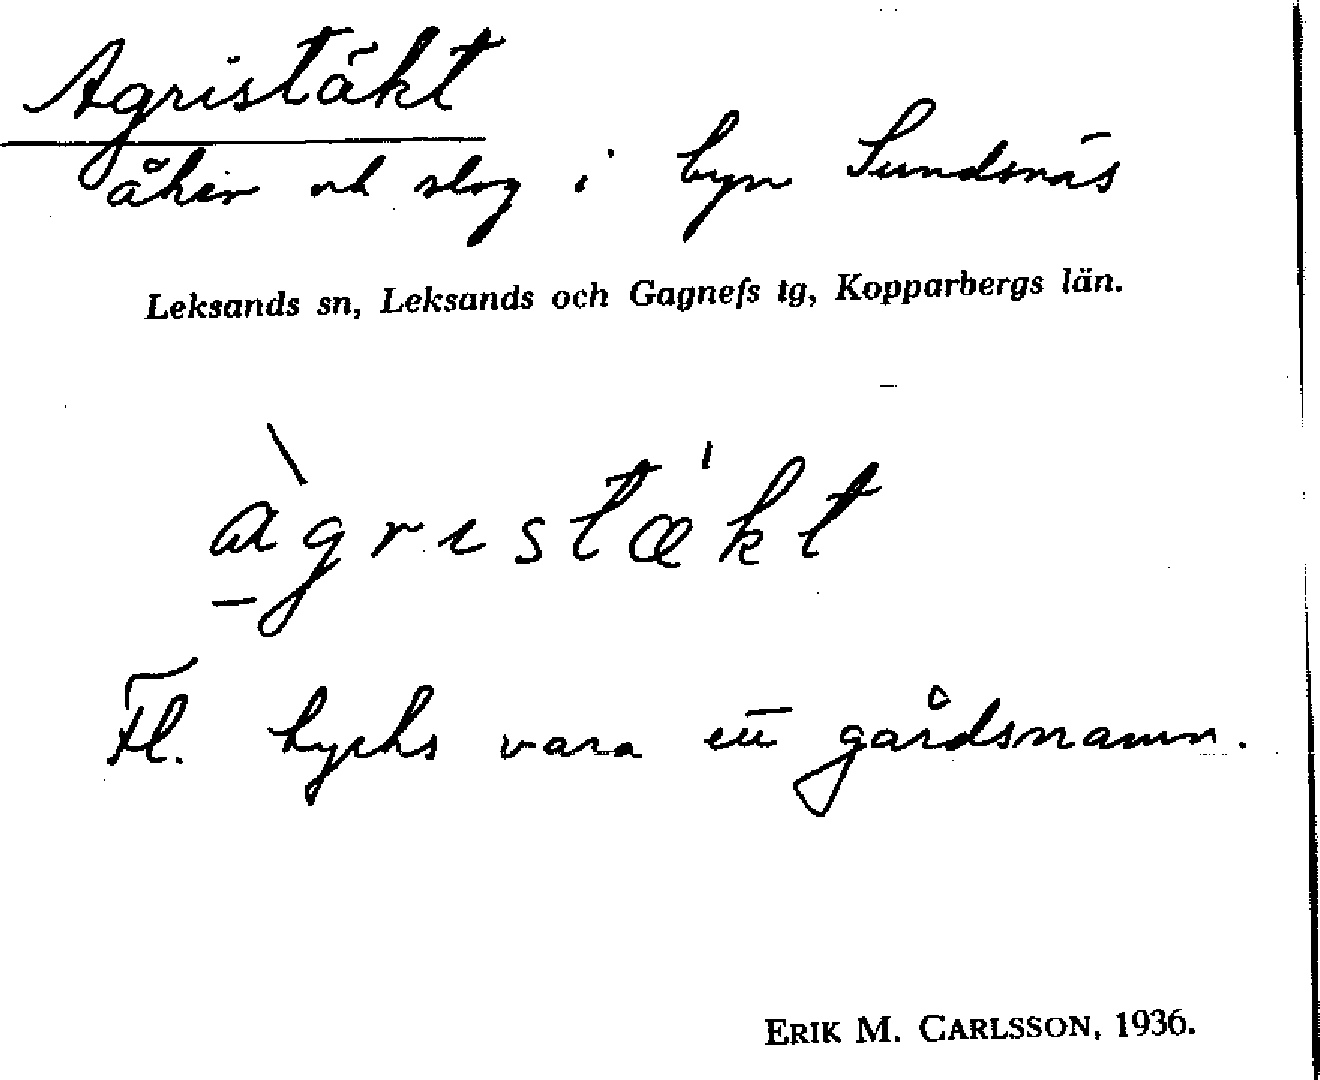 Agristäkt
åker och slog i byn Sundsnäs
Leksands sn, Leksands och Gagnefs tg, Kopparbergs län.
àgristækt
Fl. tycks vara ett gårdsnamn.
ERIK M. CARLSSON, 1936.